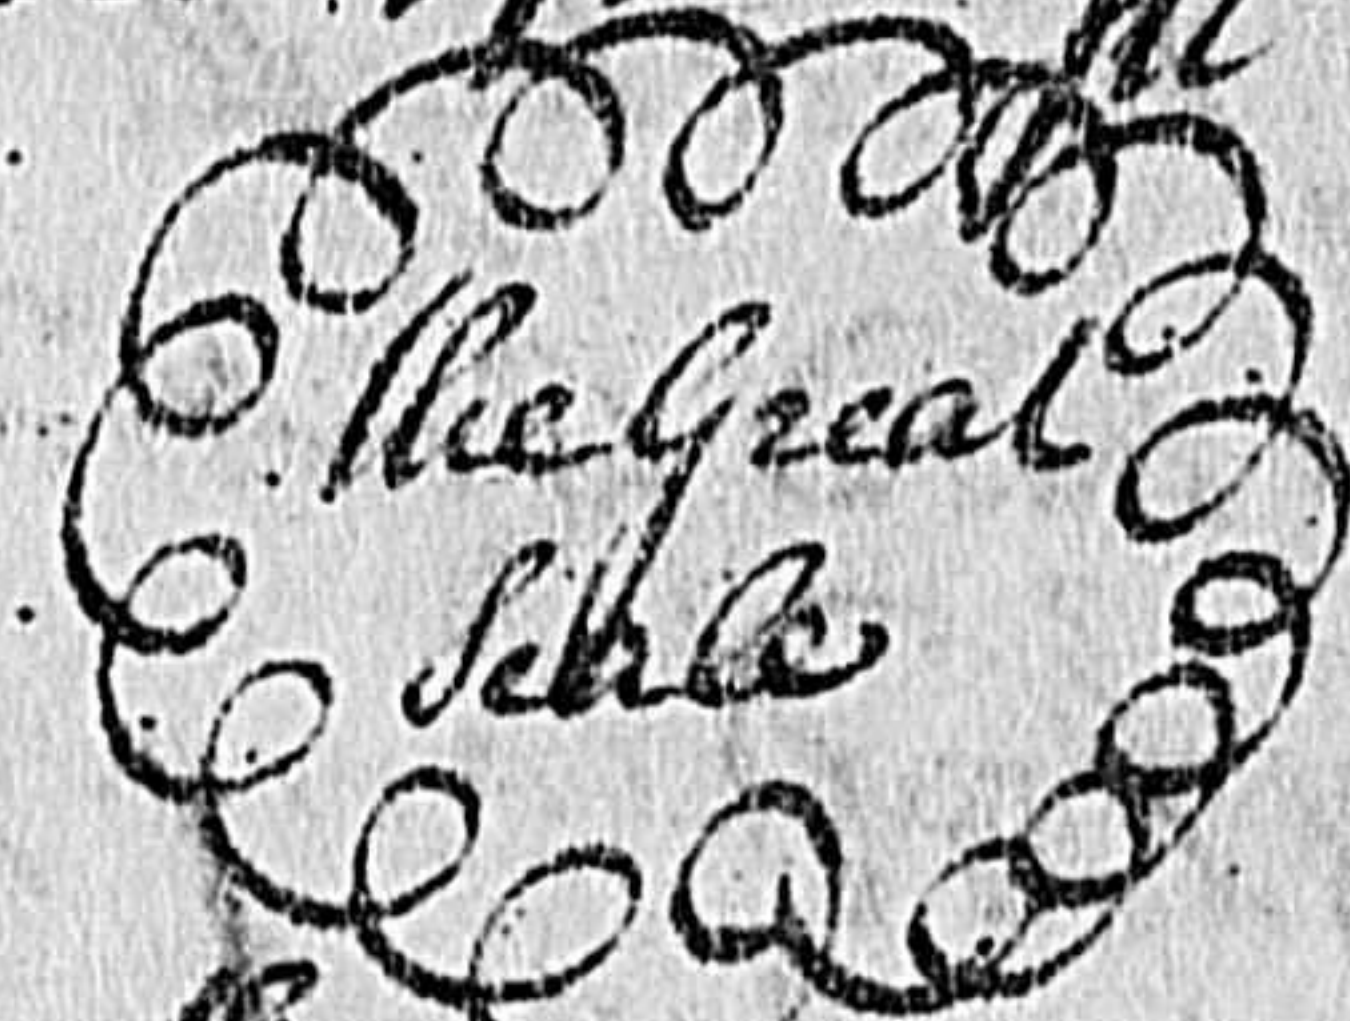 The Great
Seale